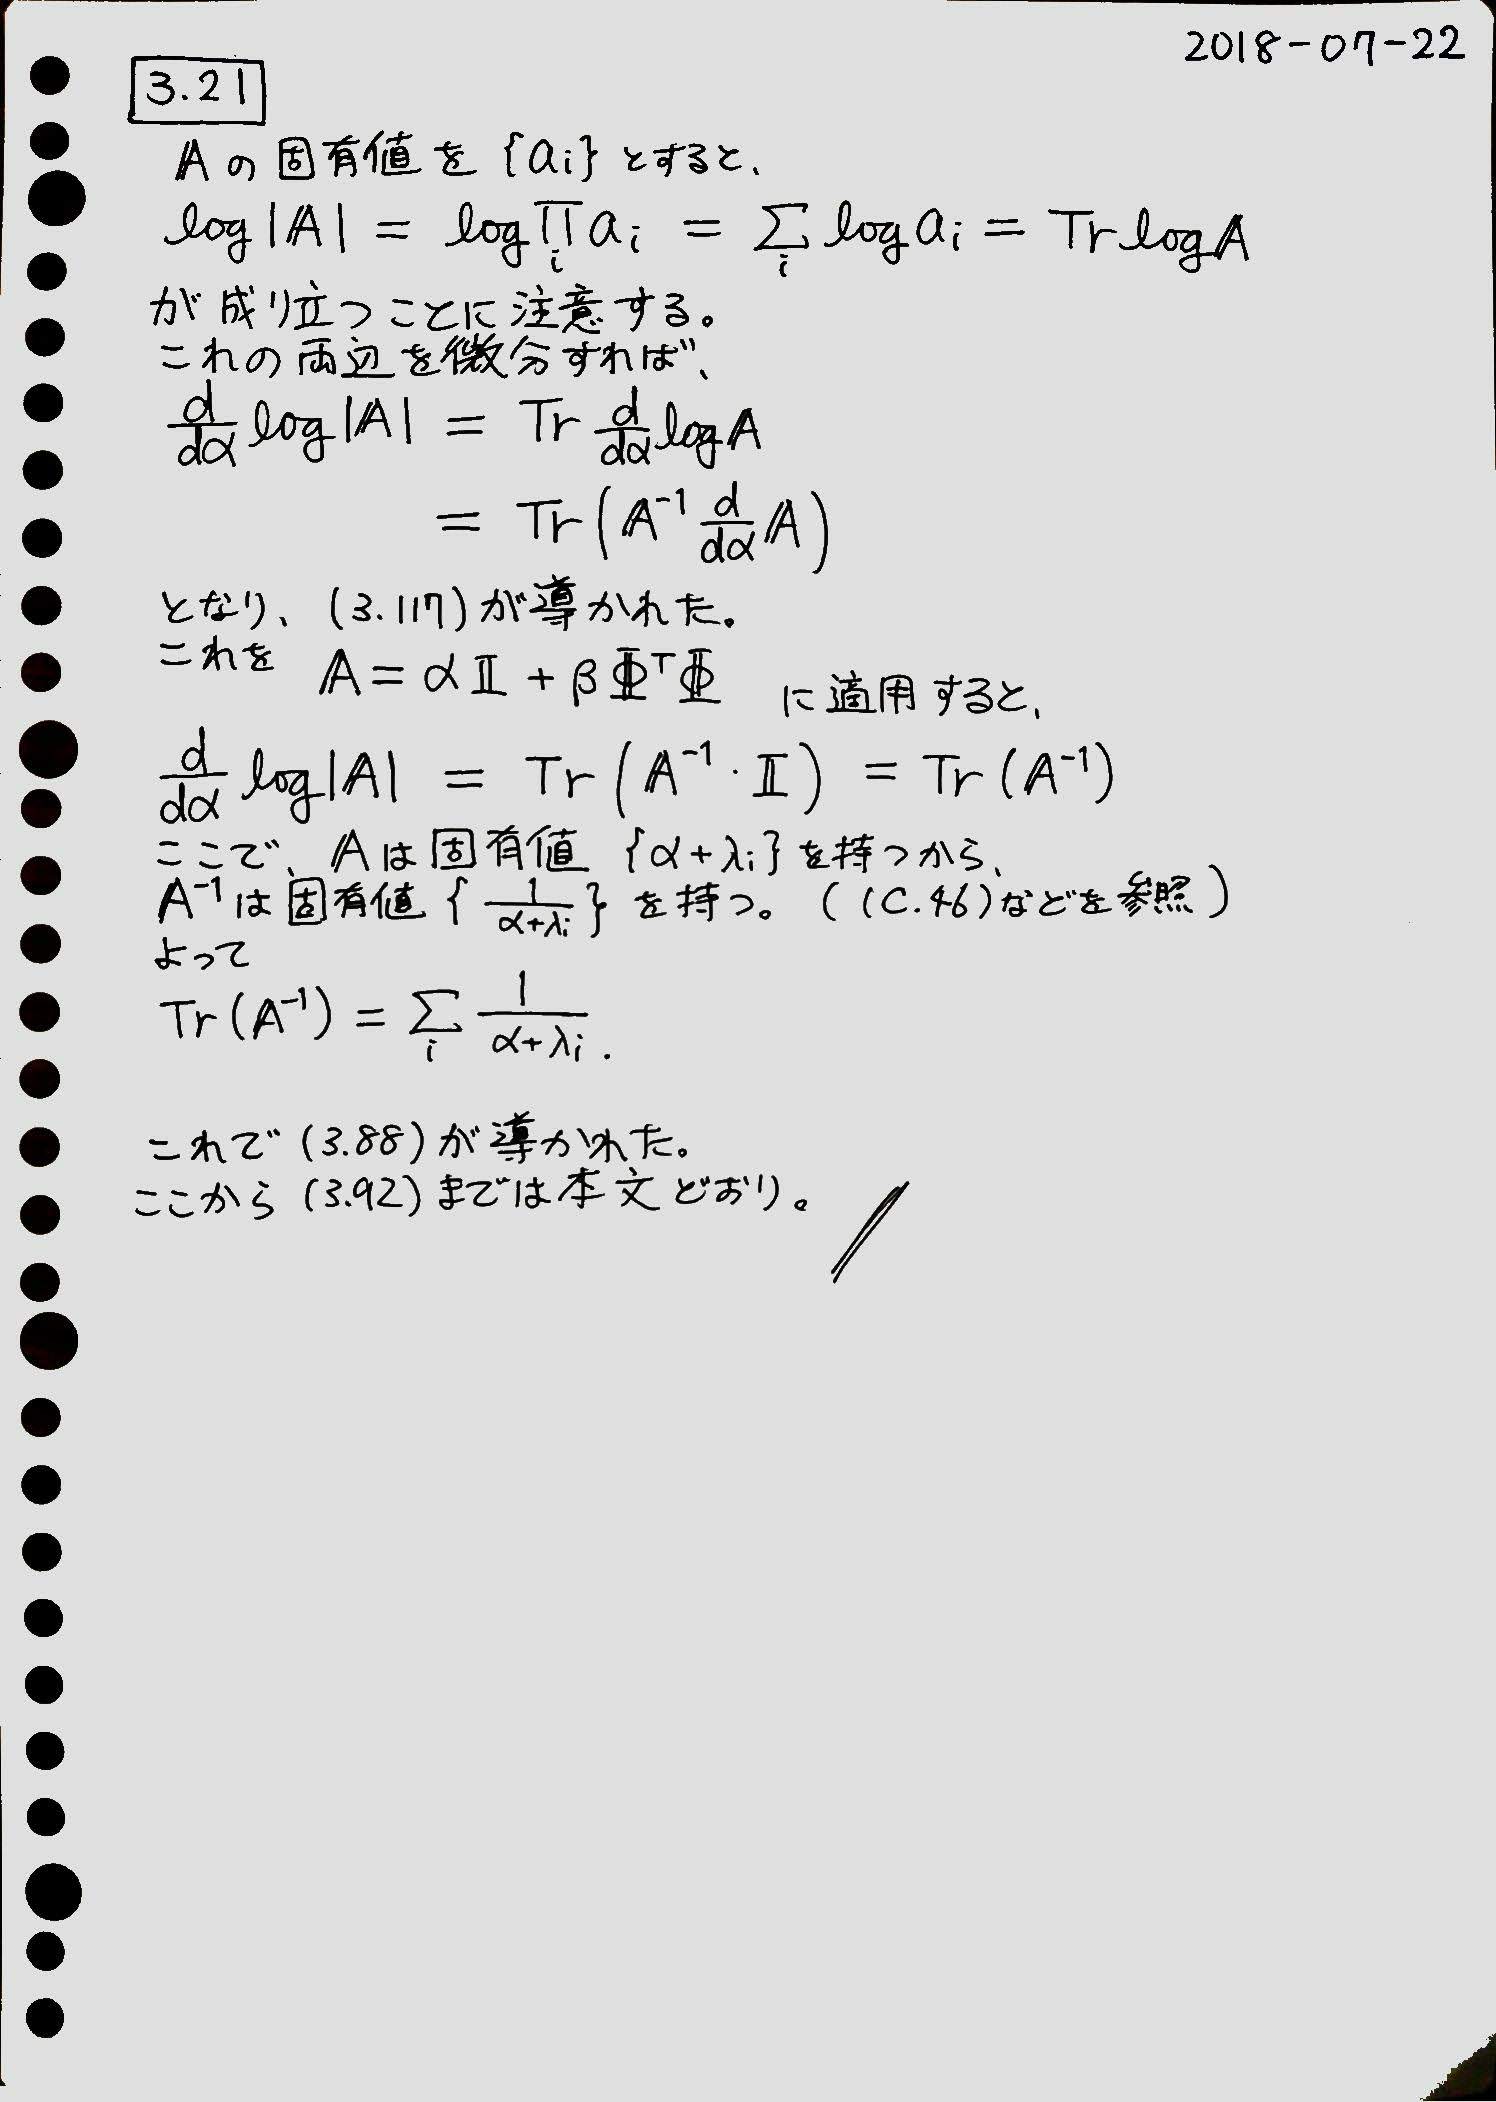 2018-07-22
3.21
Aの固有値を{aᵢ}とすると、
log|A| = log∏ᵢaᵢ = Σᵢ log aᵢ = Tr log A
が成り立つことに注意する。
これの両辺を微分すれば、
d/dα log|A| = Tr d/dα log A
= Tr(A⁻¹ d/dα A)
となり、(3.117)が導かれた。
これを A = αI + βΦᵀΦ に適用すると、
d/dα log|A| = Tr(A⁻¹・I) = Tr(A⁻¹)
ここで、Aは固有値 {α+λᵢ}を持つから、
A⁻¹は固有値{1/(α+λᵢ)}を持つ。((C.46)などを参照)
よって
Tr(A⁻¹) = Σᵢ 1/(α+λᵢ).
これで(3.88)が導かれた。
ここから(3.92)までは本文どおり。